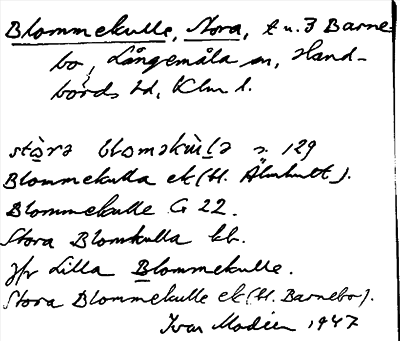 Blommekulle, Stora, t u. 3 Barne-
bo, Långemåla sn, Hand-
börds hd, Klm l.
stōrə bloməkùlə s. 129
Blommekulla ek (tl. Älmhult).
Blommekulle G 22.
Stora Blomkulla kb.
Jfr Lilla Blommekulle.
Stora Blommekulle ek (tl. Barnebo).
Ivar Modéer 1947